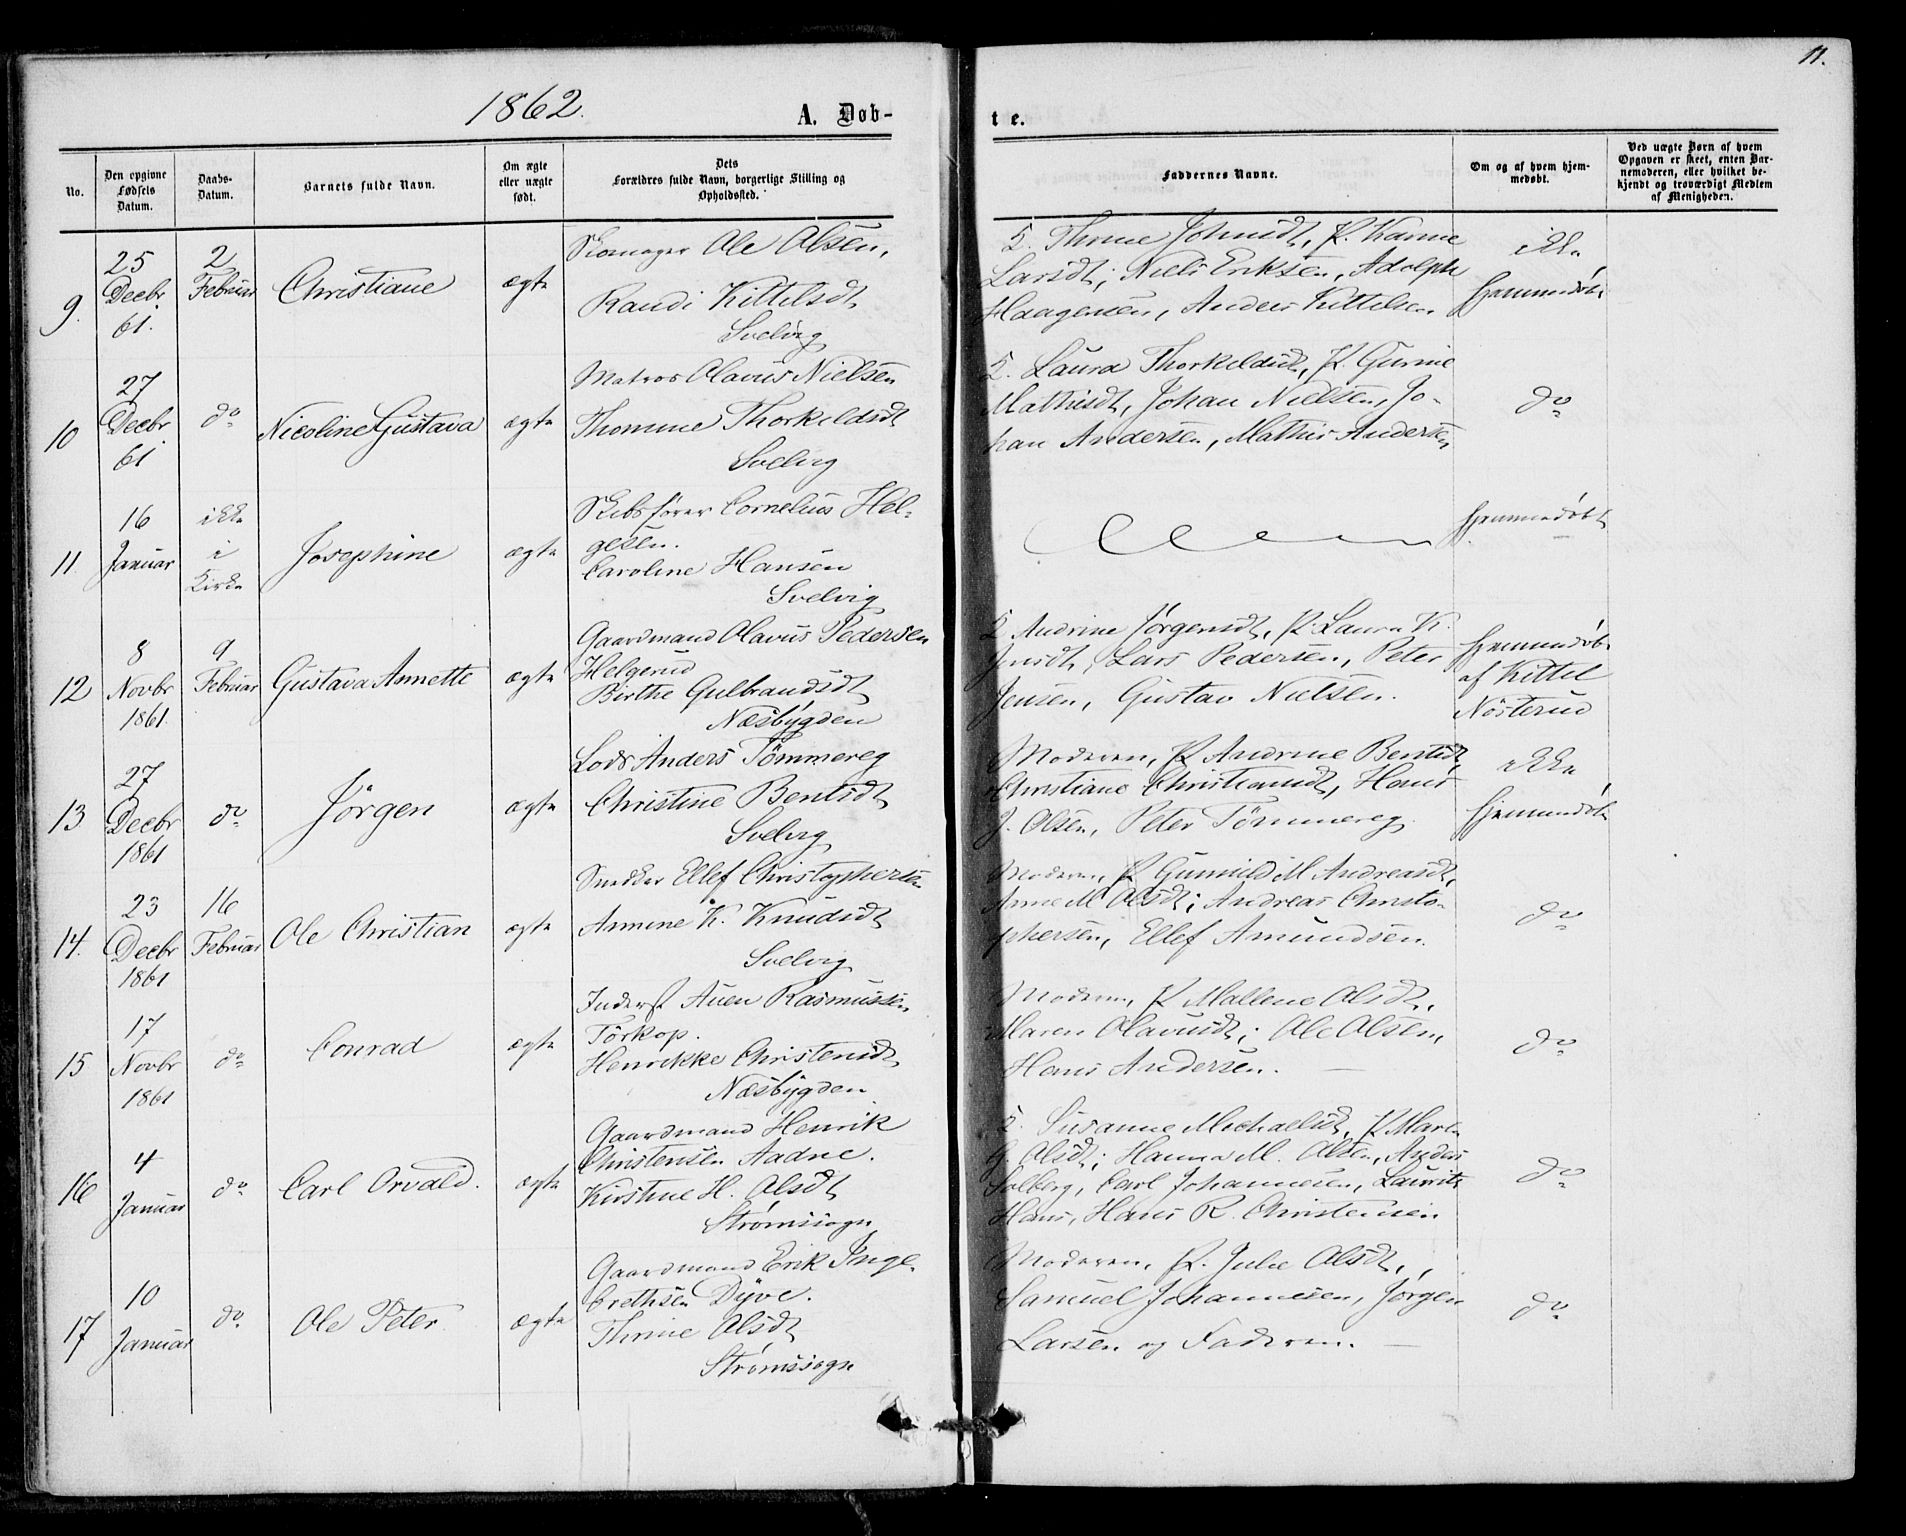 11.
1862.
A. Døb-
t e.
No.
Den opgivne
Fødsels
Datum.
Daabs-
Datum.
Barnets fulde Navn.
Om ægte
eller uægte
født.
Dets
Forældres fulde Navn, borgerlige Stilling og
Opholdssted.
Faddernes Navne.
Om og af hvem hjem-
medøbt.
Ved uægte Børn af hvem
Opgaven er skeet, enten Bar-
nemoderen, eller hvilket be-
kjendt og troværdigt Medlem
af Menigheden.
9.
25
Decbr
61.
2
Februar
Christiane
ægte
Skomager Ole Olsen,
Randi Kittelsdt
Svelvig
Larsdt; Niels Eriksen, Adolph
Haagensen, Anders Kittelsen
ikke
hjemmedøbt
10
27
Decbr
61
do
Nicoline Gustava
ægte
Matros Olavus Nielsen
Thomine Thorkildsdt
Svelvig
Q. Laura Thorkeldsdt, P. Gurine
Mathisdt, Johan Nielsen, Jo-
han Andersen, Mathis Andersen
do
11.
16
Januar
ikke
i
Kirke
Josephine
ægte
Skibsfører Cornelius Hel-
gesen.
Caroline Hansen
Svelvig
hjemmedøbt
12
8
Novbr
1861.
9
Februar
Gustava Annette
ægte
Gaardmand Olavus Pedersen
Helgerud
Birthe Gulbrandsdt
Næsbygden
Q Andrine Jørgensdt, P. Laura K.
Jensdt, Lars Pedersen, Peter
Jensen, Gustav Nielsen.
hjemmedøbt
af Kittel
Nøsterud
13
27
Decbr
1861
do
Jørgen
ægte
Lods Anders Tømmereg
Christine Bentsdt
Svelvig
Moderen, P Andrine Bentsdt
Christiane Christiansdt, Hans
J. Olsen, Peter Tømmereg
ikke
hjemmedøbt
14.
23
Decbr
1861
16
Februar
Ole Christian
ægte
Snedker Ellef Christophersen
Annine K. Knudsdt
Svelvig
Moderen, P Gunnild M Andreasdt,
Anne M Olsdt; Andreas Christo-
phersen, Ellef Amundsen.
do
15
17
Novbr
1861
do
Conrad
ægte
Inderst Auen Rasmussen
Tørkop.
Henrikke Christensdt
Næsbygden
Moderen, P Mallene Olsdt,
Maren Olavusdt; Ole Olsen,
Hans Andersen.
do
16
4
Januar
do
Carl Orvald.
ægte
Gaardmand Henrik
Christensen Aadne.
Kirstine H. Olsdt
Strømssogn
Q. Susanne Michaelsdt, P Maren
G. Olsdt; Hanna M. Olsen, Anders
Solberg, Carl Johannesen, Laurits
Hans, Hans R. Christensen
do
17
10
Januar
do
Ole Peter
ægte
Gaardmand Erik Inge-
brethsen Dyve.
Thrine Olsdt
Strømssogn
Moderen, P. Julie Olsdt,
Samuel Johannesen, Jørgen
Larsen og Faderen.
do